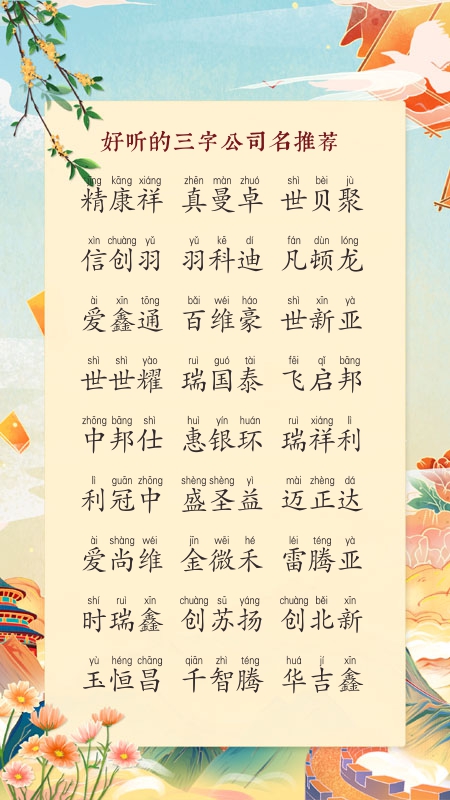 好听的三字公司名推荐
jīng kāng xiáng zhēn màn zhuó shì bèi jù
精康祥 真曼卓 世贝聚
xìn chuàng yǔ yǔ kē dí fán dùn lóng
信创羽 羽科迪 凡顿龙
ài xīn tōng bǎi wéi háo shì xīn yà
爱鑫通 百维豪 世新亚
shì shì yào ruì guó tài fēi qǐ bāng
世世耀 瑞国泰 飞启邦
zhōng bāng shì huì yín huán ruì xiáng lì
中邦仕 惠银环 瑞祥利
lì guān zhōng shèng shèng yì mài zhèng dá
利冠中 盛圣益 迈正达
ài shàng wéi jīn wēi hé léi téng yà
爱尚维 金微禾 雷腾亚
shí ruì xīn chuàng sū yáng chuàng běi xīn
时瑞鑫 创苏扬 创北新
yù héng chāng qiān zhì téng huá jí xīn
玉恒昌 千智腾 华吉鑫